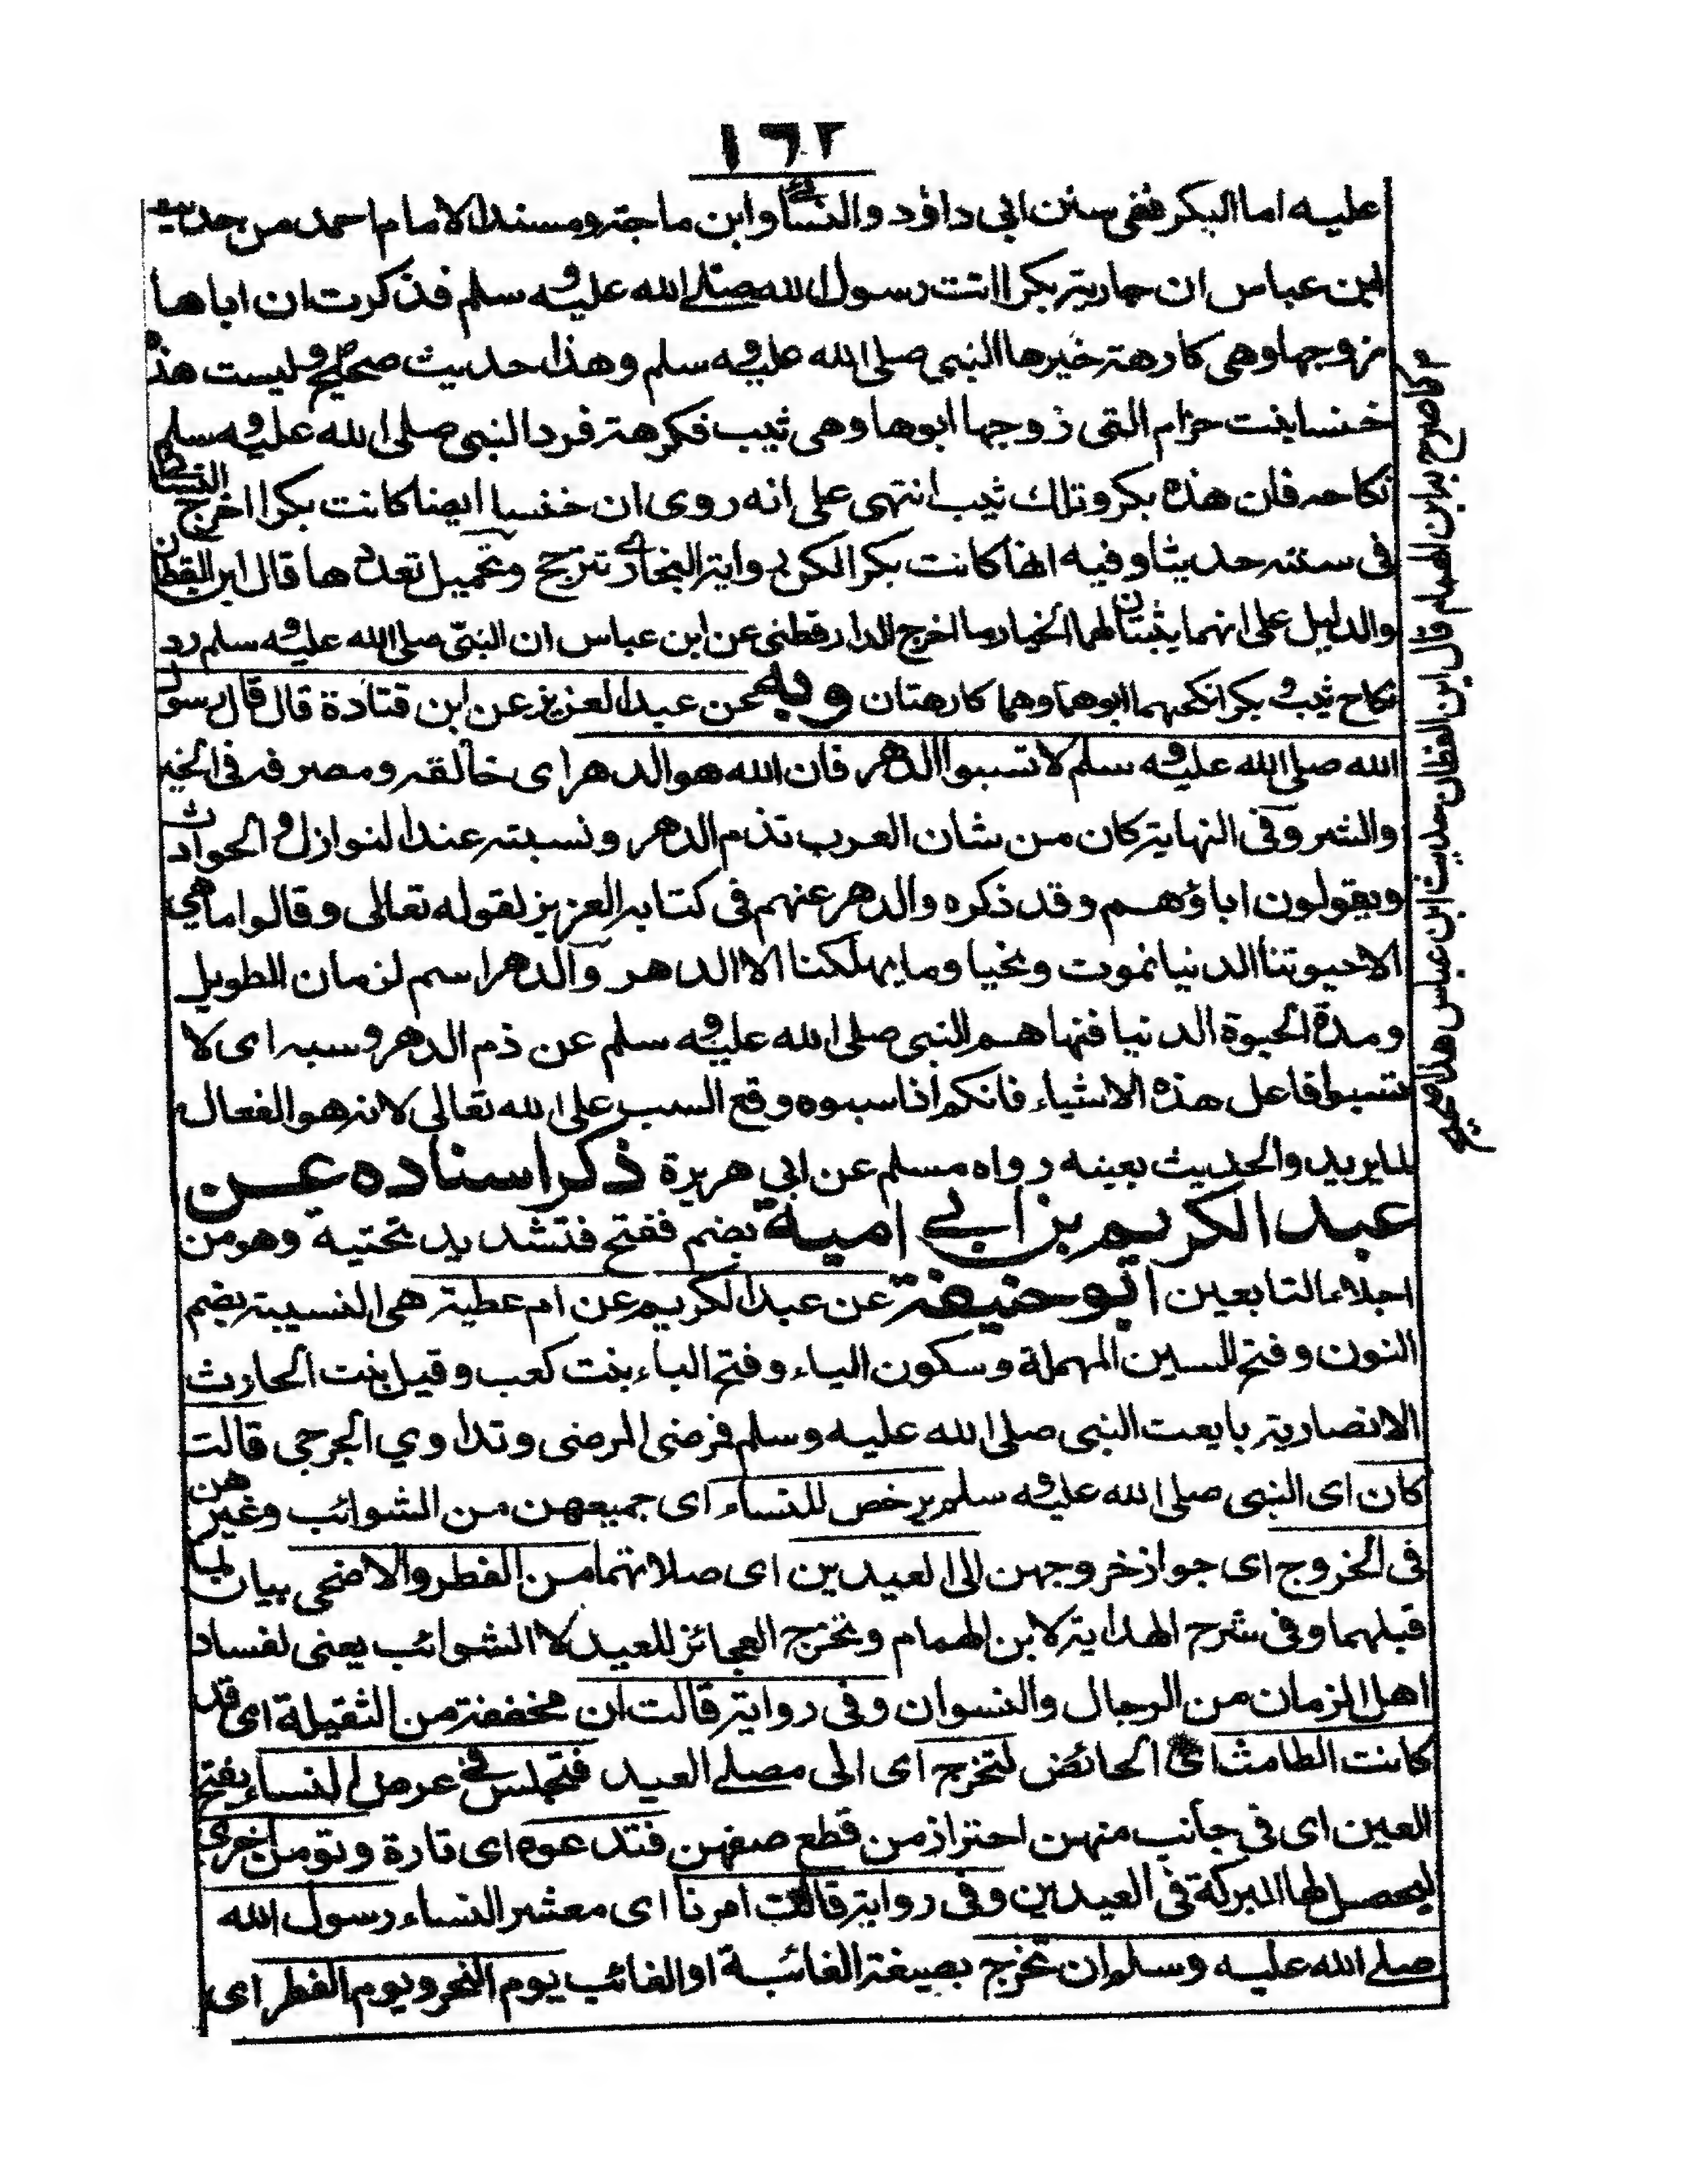 ١٦٢
عليه اما البكر ففى سنن ابى داؤد والنسائى وابن ماجة ومسند الامام احمد من حديث
ابن عباس ان جارية بكرا اتت رسول الله صلى الله عليه وسلم فذكرت ان اباها
زوجها وهى كارهة خيرها النبى صلى الله عليه وسلم وهذا حديث صحيح وليست هذه
خنسا بنت حزام التى زوجها ابوها وهى ثيب فكرهته فرد النبى صلى الله عليه وسلم
نكاحه فان هذه بكر وتلك ثيب انتهى على انه روى ان خنسا ايضا كانت بكرا اخرج النسائى
فى سننه حديثا وفيه انها كانت بكرا لكن رواية البخارى تترجح وتحميل تعدد ها قال ابن القطان
والدليل على انهما يثبتان لهما الخيار ما اخرج الدارقطنى عن ابن عباس ان النبى صلى الله عليه وسلم رد
نكاح ثيب وبكر انكحهما ابوهما وهما كارهتان وبه عن عبد العزيز عن ابن قتادة قال قال رسول
الله صلى الله عليه وسلم لا تسبوا الدهر فان الله هو الدهر اى خالقه ومصرفه فى الخير
والشر وفى النهاية كان من شان العرب تذم الدهر ونسبته عند النوازل والحوادث
ويقولون اباؤهم وقد ذكره والدهر عنهم فى كتابه العزيز لقوله تعالى وقالوا ما هى
الا حيوتنا الدنيا نموت ونحيا وما يهلكنا الا الدهر والدهر اسم لزمان الطويل
ومدة الحيوة الدنيا فنهاهم النبى صلى الله عليه وسلم عن ذم الدهر وسبه اى لا
تسبوا فاعل هذه الاشياء فانكم اذا سبوه وقع السب على الله تعالى لانه هو الفعال
لما يريد والحديث بعينه رواه مسلم عن ابى هريرة ذكر اسناده عن
عبد الكريم بن ابي امية بضم ففتح فتشديد تحتية وهو من
اجلاء التابعين ابو حنيفة عن عبد الكريم عن ام عطية هى النسيبة بضم
النون وفتح السين المهملة وسكون الياء وفتح الباء بنت كعب وقيل بنت الحارث
الانصارية بايعت النبى صلى الله عليه وسلم فرضى المرضى وتداوي الجرحى قالت
كان اى النبى صلى الله عليه وسلم يرخص للنساء اى جميعهن من الشوائب وغيرهن
فى الخروج اى جواز خروجهن الى العيدين اى صلاتهما من الفطر والاضحى بيان لما
قبلهما وفى شرح الهداية لابن الهمام وتخرج العجائز للعيد لا الشوائب يعنى لفساد
اهل الزمان من الرجال والنسوان وفى رواية قالت ان مخففة من الثقيلة اى قد
كانت الطامث اى الحائض لتخرج اى الى مصلے العيد فتجلس فى عرض النساء بفتح
العين اى فى جانب منهن احتراز من قطع صفهن فتدعوه اى تارة وتومن اخرى
ليحصل لها البركة فى العيدين وفى رواية قالت امرنا اى معشر النساء رسول الله
صلے الله عليه وسلم ان تخرج بصيغة الغائبة او الغائب يوم النحر ويوم الفطر اى
كما صرح به ابن الهمام وقال ابن القطان حديث ابن عباس هذا صحيح